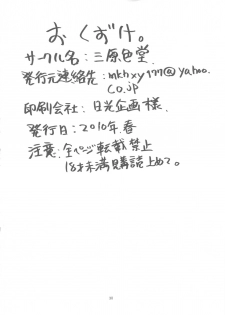 おくずけ。
サークル名：三原色堂
発行元連絡先：mkhxy177@yahoo.
co.jp
印刷会社：日光企画様
発行日：2010年.春
注意：全ページ転載禁止
18才未満購読止めて。